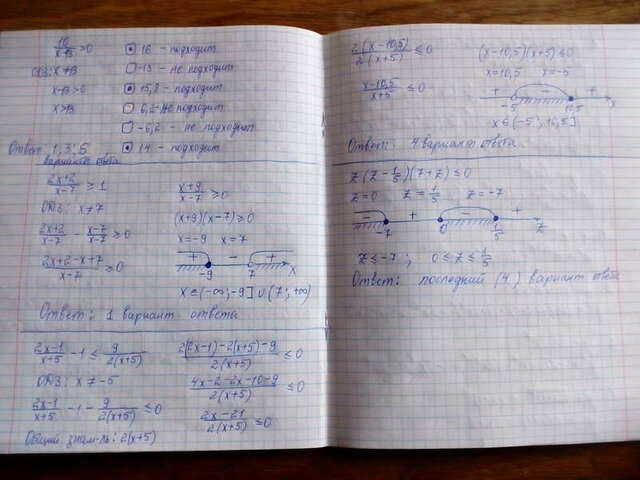 16/(x-13) > 0
ОДЗ: x ≠ 13
x-13 > 0
x > 13
16 - подходит
-13 - не подходит
15,8 - подходит
6,2 - не подходит
-6,2 - не подходит
14 - подходит
Ответ: 1, 3, 6
варианты ответа
(2x+2)/(x-7) ≥ 1
ОДЗ: x ≠ 7
(2x+2)/(x-7) - (x-7)/(x-7) ≥ 0
(2x+2-x+7)/(x-7) ≥ 0
(x+9)/(x-7) ≥ 0
(x+9)(x-7) ≥ 0
x=-9 x=7
+ - +
-9 7 x
x ∈ (-∞; -9] ∪ (7; +∞)
Ответ: 1 вариант ответа
(2x-1)/(x+5) - 1 ≤ 9/(2(x+5))
ОДЗ: x ≠ -5
(2x-1)/(x+5) - 1 - 9/(2(x+5)) ≤ 0
Общий знам-ль: 2(x+5)
(2(2x-1)-2(x+5)-9)/(2(x+5)) ≤ 0
(4x-2-2x-10-9)/(2(x+5)) ≤ 0
(2x-21)/(2(x+5)) ≤ 0
2(x-10,5)/(2(x+5)) ≤ 0
(x-10,5)/(x+5) ≤ 0
(x-10,5)(x+5) ≤ 0
x=10,5 x=-5
+ - +
-5 10,5 x
x ∈ (-5; 10,5]
Ответ: 4 вариант ответа
z(z - 1/5)(7+z) ≤ 0
z=0 z=1/5 z=-7
- + - +
-7 0 1/5 z
z ≤ -7; 0 ≤ z ≤ 1/5
Ответ: последний (4) вариант ответа